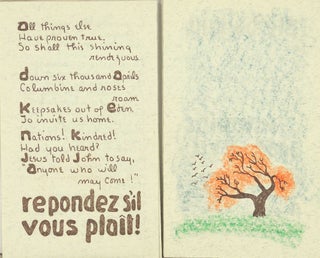 All things else
Have proven true.
So shall this shining
rendezvous
down six thousand Aprils
Columbine and roses
roam
Keepsakes out of Eden
To invite us home.
nations! Kindred!
Had you heard?
Jesus told John to say,
"Anyone who will
may come!"
repondez s'il
vous plaît!